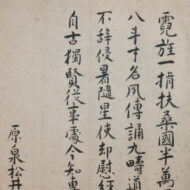 霓旌一指扶桑國半萬
八斗才名風傳誦九疇道
不辞侵暑隨星使却慰
自古獨賢從事處今知專
原泉松井